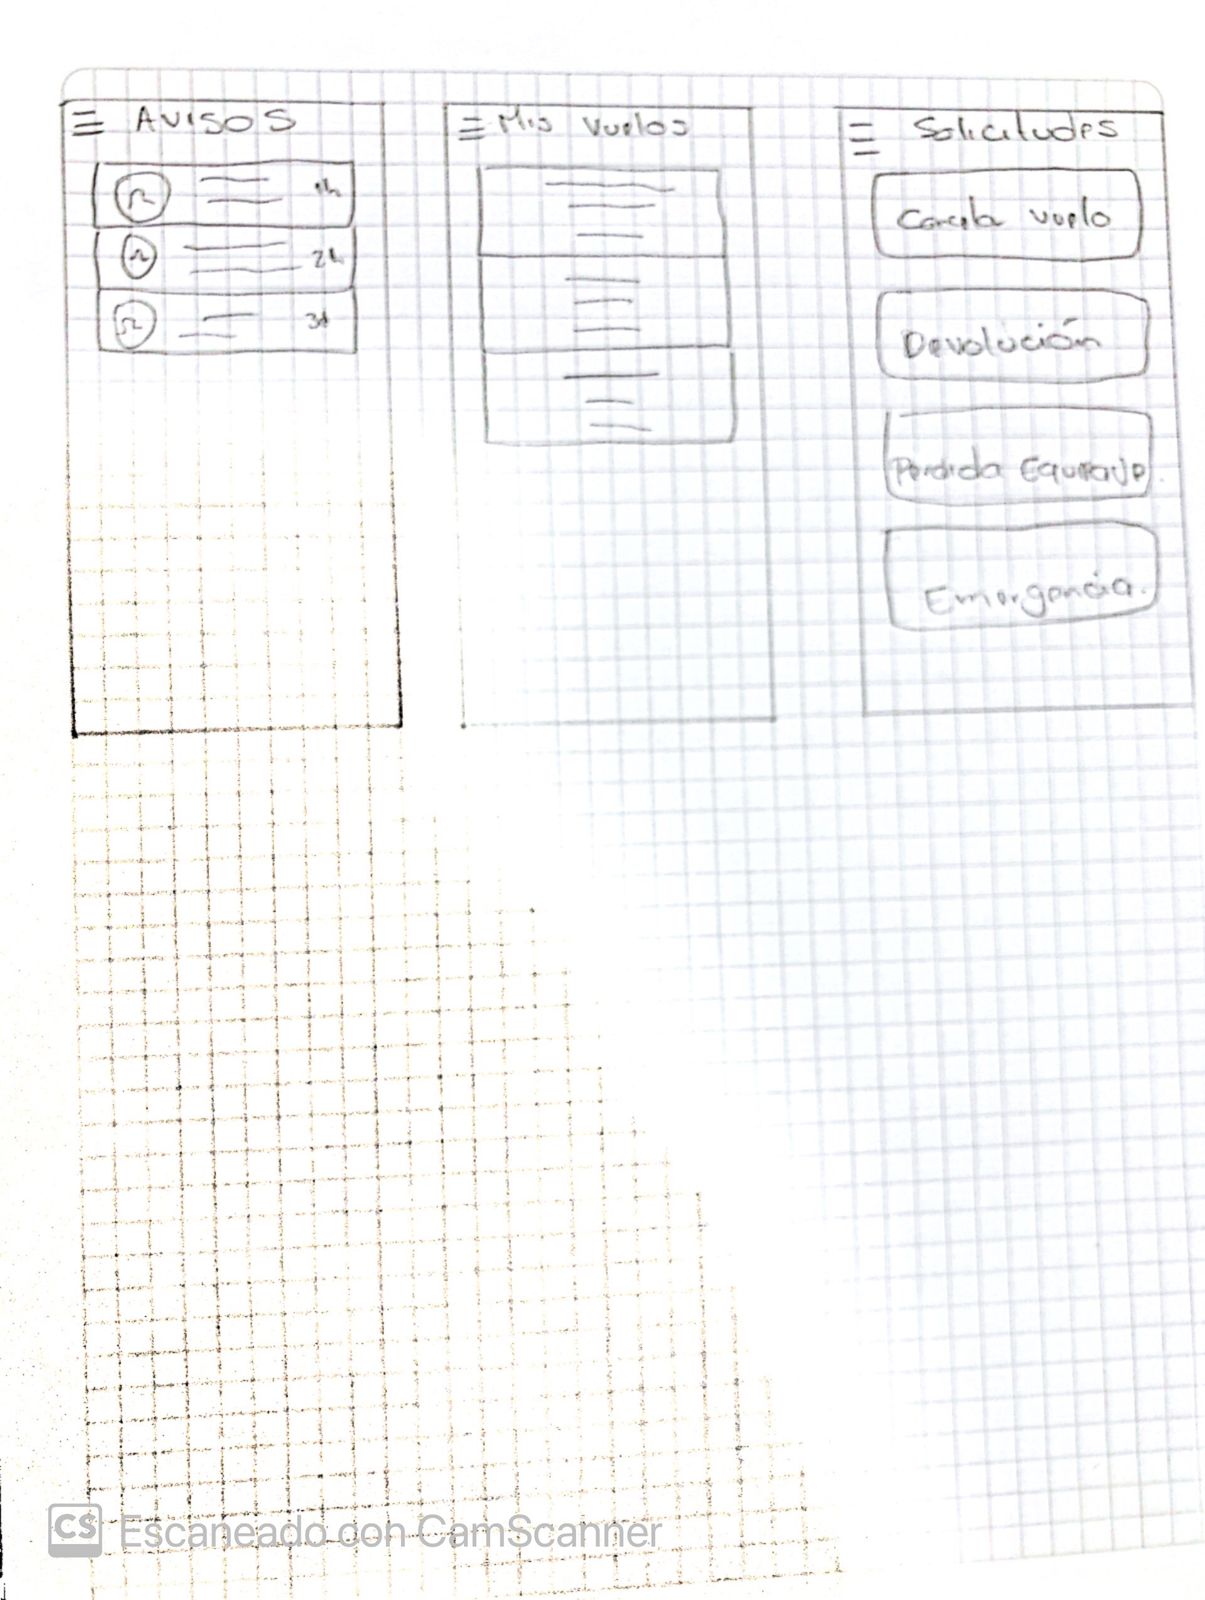 AVISOS
1h
2h
3d
Mis Vuelos
Solicitudes
Cancela vuelo
Devolución
Perdida Equipaje.
Emergencia.
CS Escaneado con CamScanner